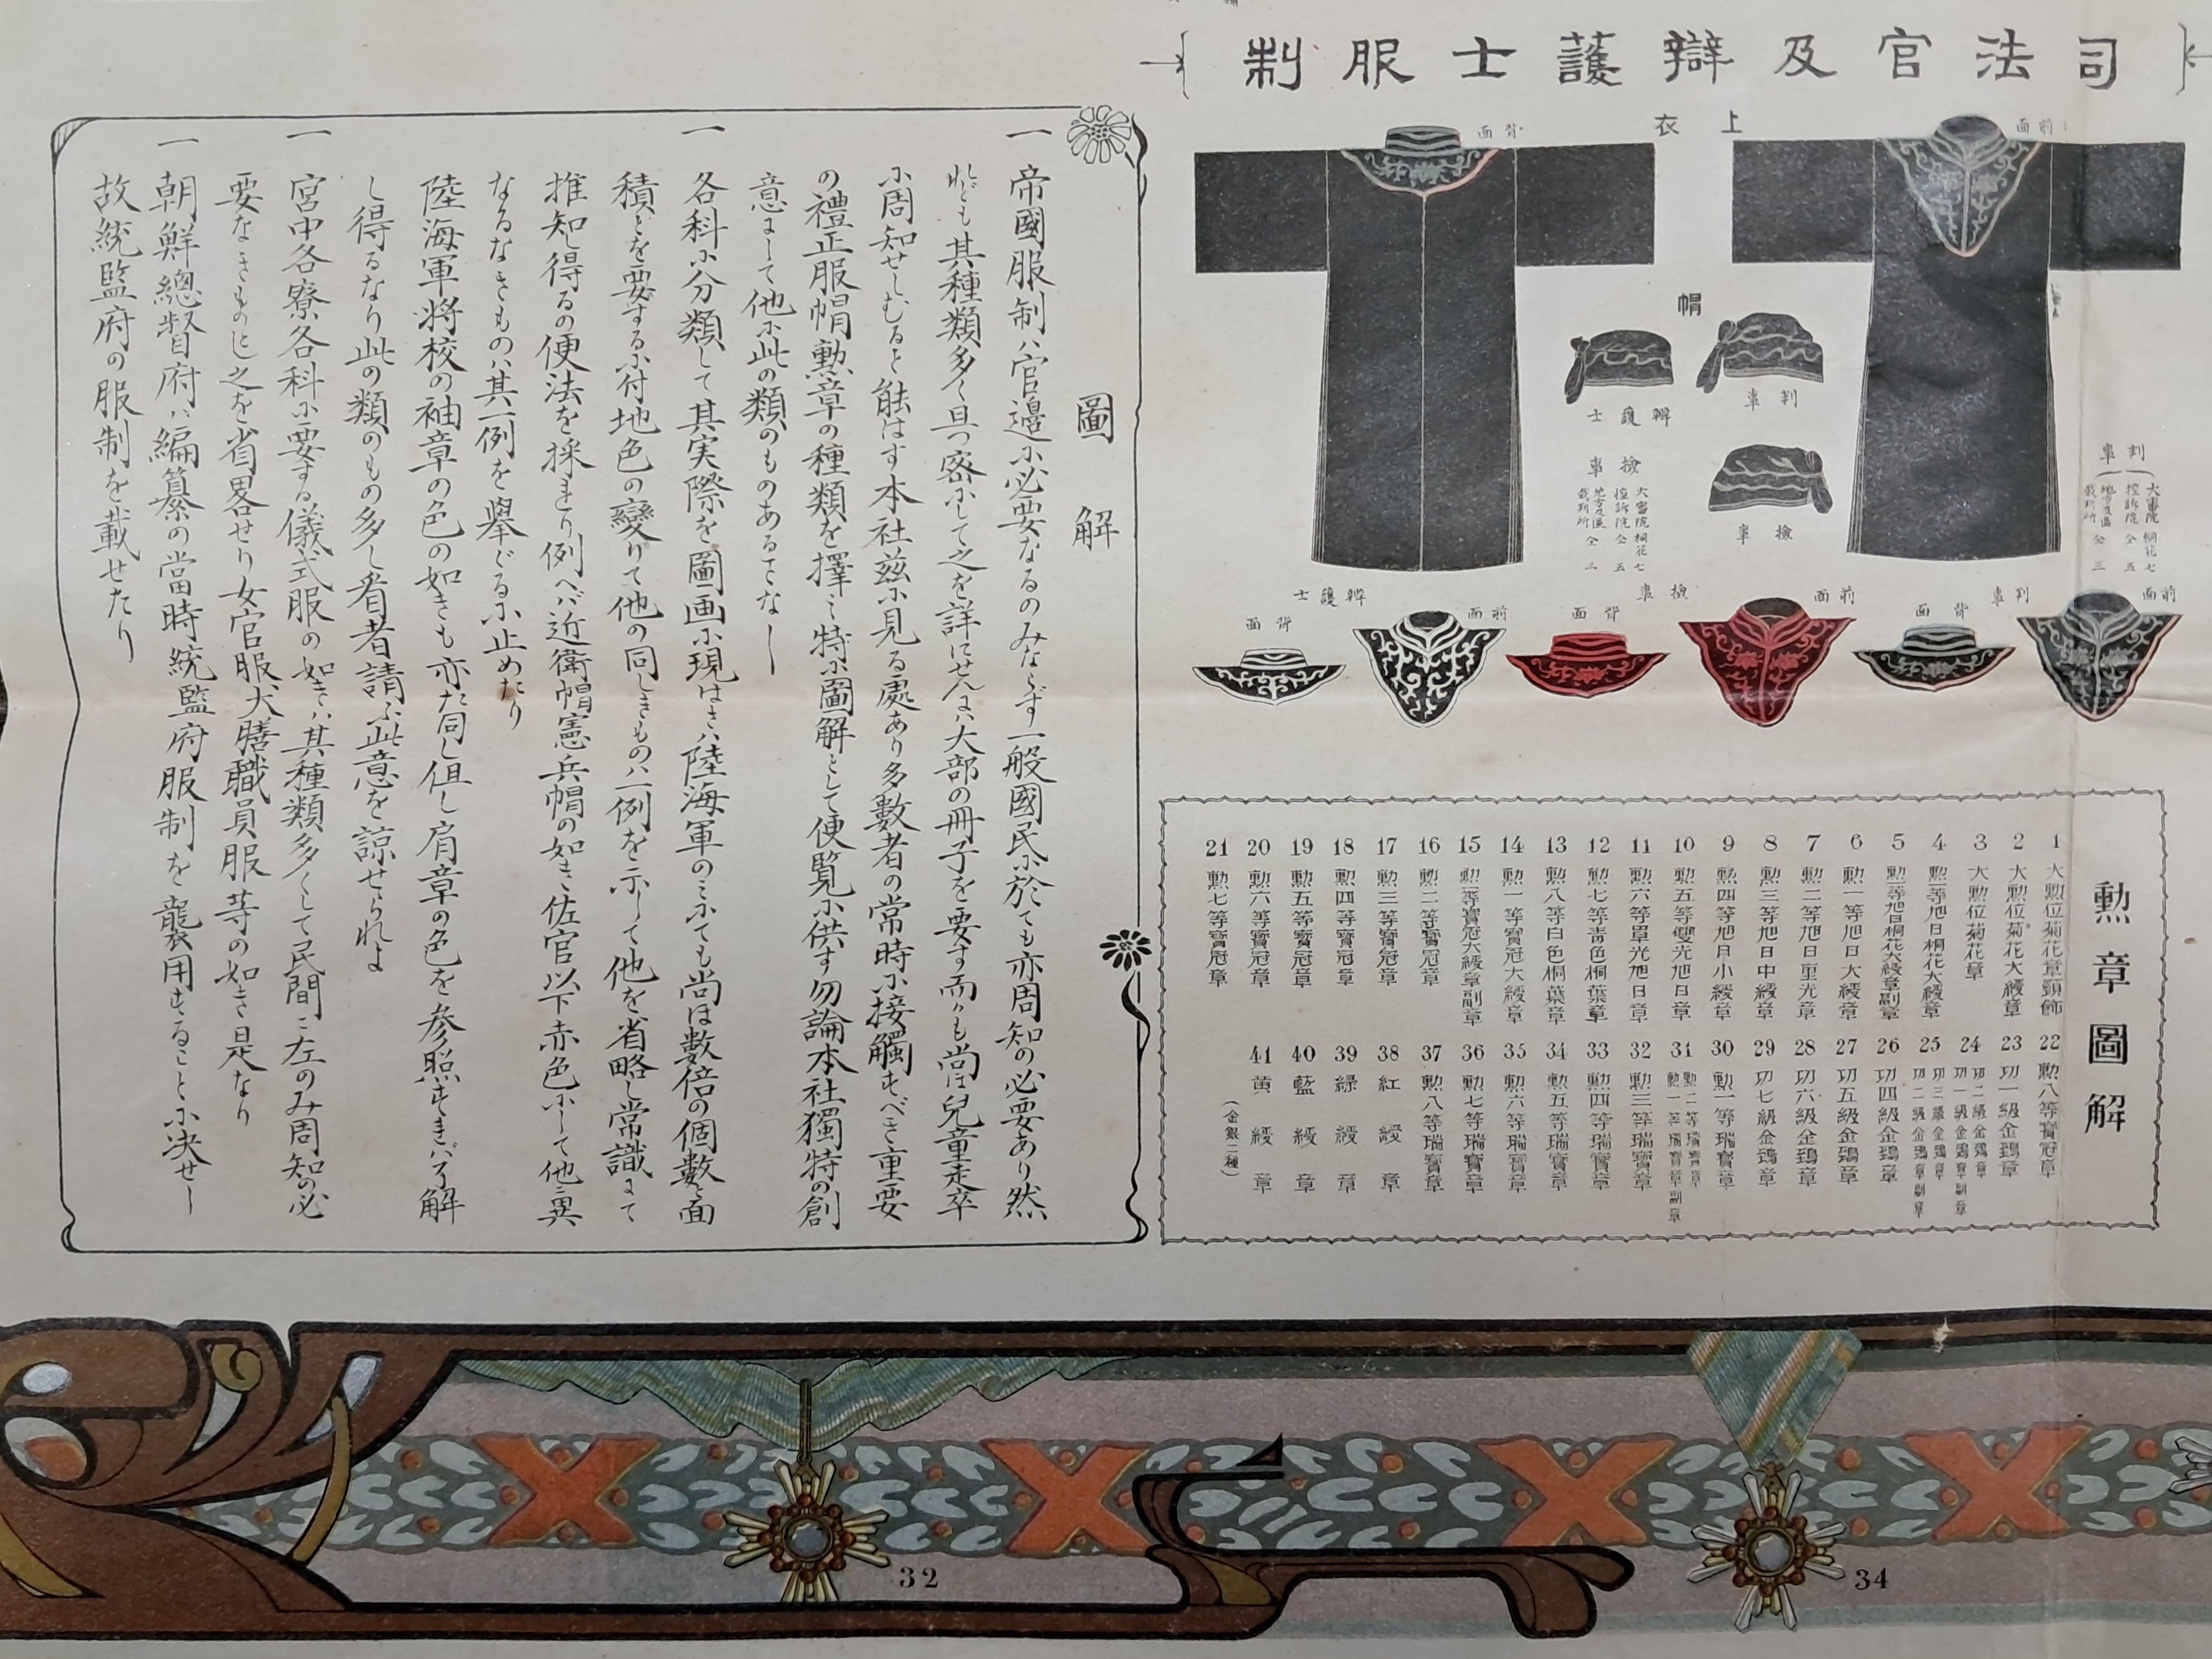 司法官及辯護士服制
上衣
前面
背面
帽
判事
辯護士
檢事
判事
大審院 桐花七
控訴院 仝 五
地方及區裁判所 仝 三
檢事
大審院 桐花七
控訴院 仝 五
地方及區裁判所 仝 三
前面
判事
背面
前面
檢事
背面
前面
辯護士
背面
勳章圖解
1 大勲位菊花章頸飾
2 大勲位菊花大綬章
3 大勲位菊花章
4 勲一等旭日桐花大綬章
5 勲一等旭日桐花大綬章副章
6 勲一等旭日大綬章
7 勲二等旭日重光章
8 勲三等旭日中綬章
9 勲四等旭日小綬章
10 勲五等雙光旭日章
11 勲六等單光旭日章
12 勲七等青色桐葉章
13 勲八等白色桐葉章
14 勲一等寶冠大綬章
15 勲一等寶冠大綬章副章
16 勲二等寶冠章
17 勲三等寶冠章
18 勲四等寶冠章
19 勲五等寶冠章
20 勲六等寶冠章
21 勲七等寶冠章
22 勲八等寶冠章
23 功一級金鵄章
24 功二級金鵄章 功一級金鵄章副章
25 功三級金鵄章 功二級金鵄章副章
26 功四級金鵄章
27 功五級金鵄章
28 功六級金鵄章
29 功七級金鵄章
30 勲一等瑞寶章
31 勲二等瑞寶章 勲一等瑞寶章副章
32 勲三等瑞寶章
33 勲四等瑞寶章
34 勲五等瑞寶章
35 勲六等瑞寶章
36 勲七等瑞寶章
37 勲八等瑞寶章
38 紅綬章
39 緑綬章
40 藍綬章
41 黄綬章
(金銀二種)
圖解
一 帝國服制ハ官邊ニ必要なるのみならず一般國民ニ於ても亦周知の必要あり然
れども其種類多く且つ密ニして之を詳にせんにハ大部の冊子を要す而かも尚ほ兒童走卒
ニ周知せしむること能はす本社茲ニ見る處あり多數者の常時ニ接觸すべき重要
の禮正服帽勲章の種類を擇ミ特ニ圖解として便覧ニ供す勿論本社獨特の創
意にして他ニ此の類のものあることなし
一 各科ニ分類して其実際を圖画ニ現はさハ陸海軍のミニても尚ほ數倍の個數と面
積とを要するニ付地色の變りて他の同しきものハ一例を示して他を省略し常識にて
推知し得るの便法を採れり例へバ近衛帽憲兵帽の如き佐官以下赤色ニして他ニ異
なるなきものハ其一例を擧ぐるニ止めたり
陸海軍将校の袖章の色の如きも亦た同し但し肩章の色を参照すれバ了解
し得るなり此の類のもの多し看者請ふ此意を諒せられよ
一 宮中各寮各科ニ要する儀式服の如きハ其種類多くして民間ニ左のみ周知の必
要なきものとし之を省畧せり女官服大膳職員服等の如き是なり
一 朝鮮總督府ハ編纂の當時統監府服制を襲用することニ決せし
故統監府の服制を載せたり
32
34